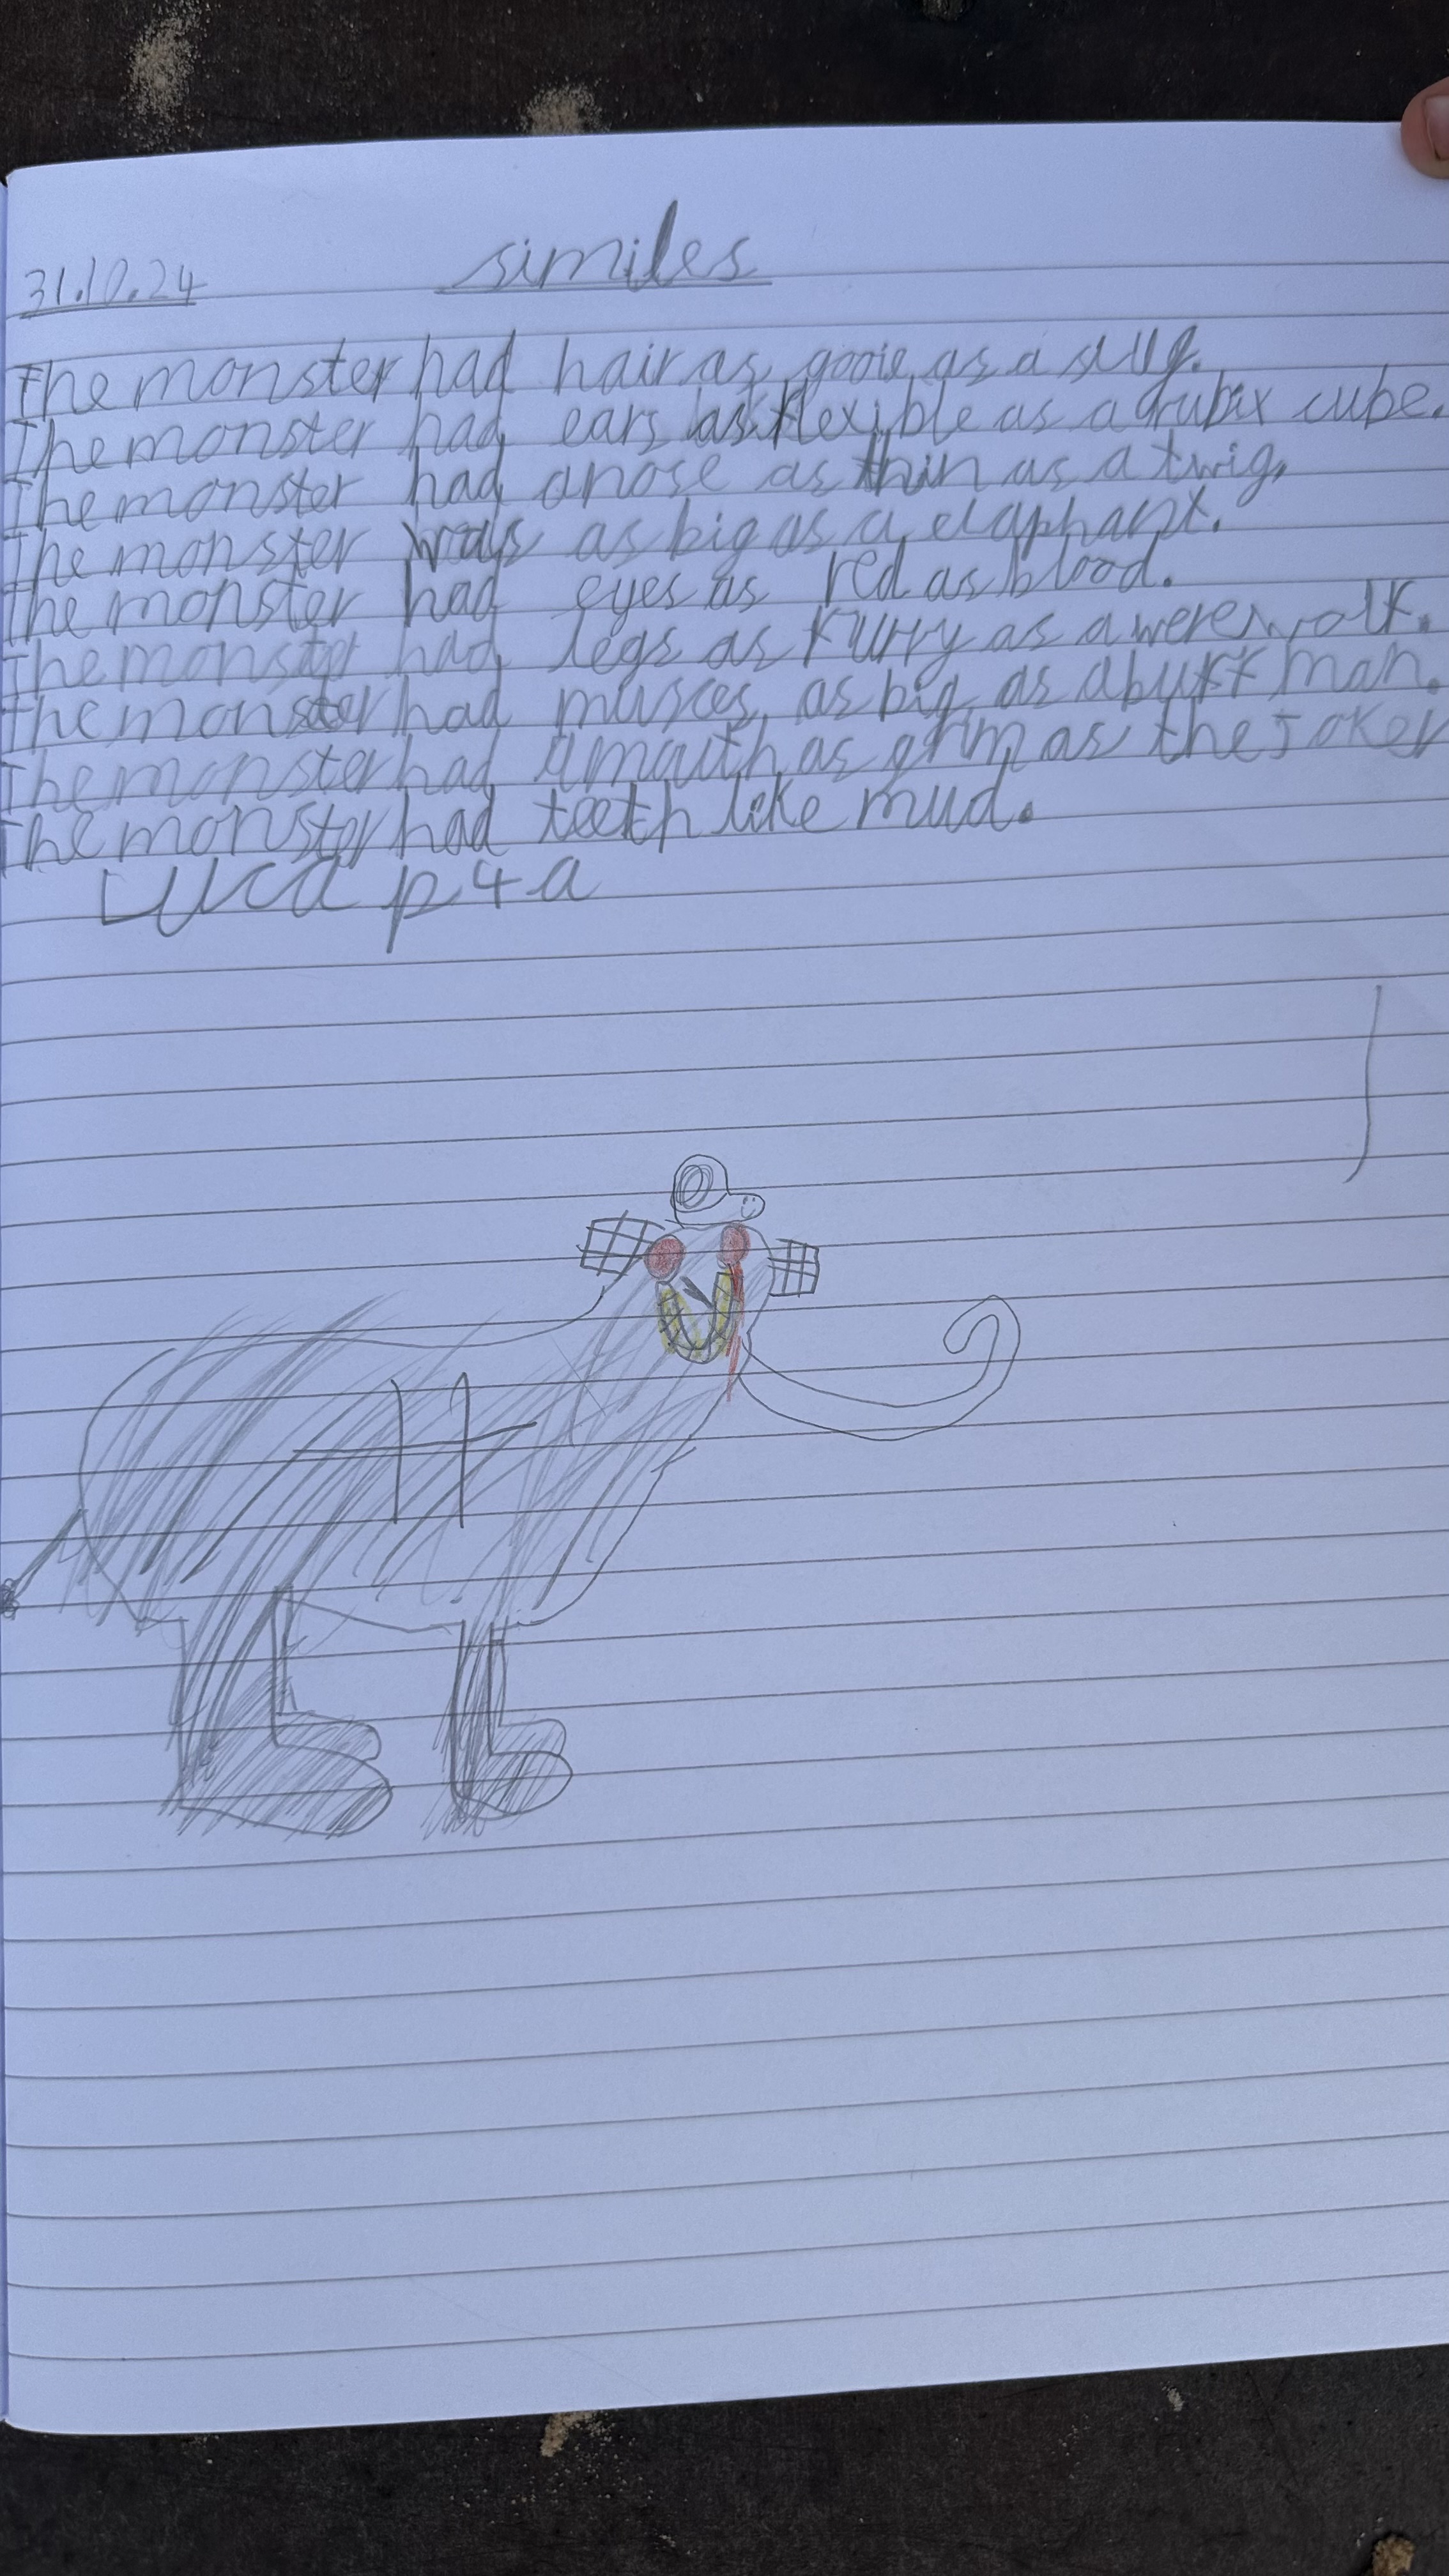 31.10.24 similes
The monster had hair as gooie as a slug.
The monster had ears as flexible as a rubix cube.
The monster had a nose as thin as a twig.
The monster was as big as a elaphant.
The monster had eyes as red as blood.
The monster had legs as furry as a werewolf.
The monster had musces as big as a buff man.
The monster had a mouth as grim as the Joker
The monster had teeth like mud.
Luca p4a